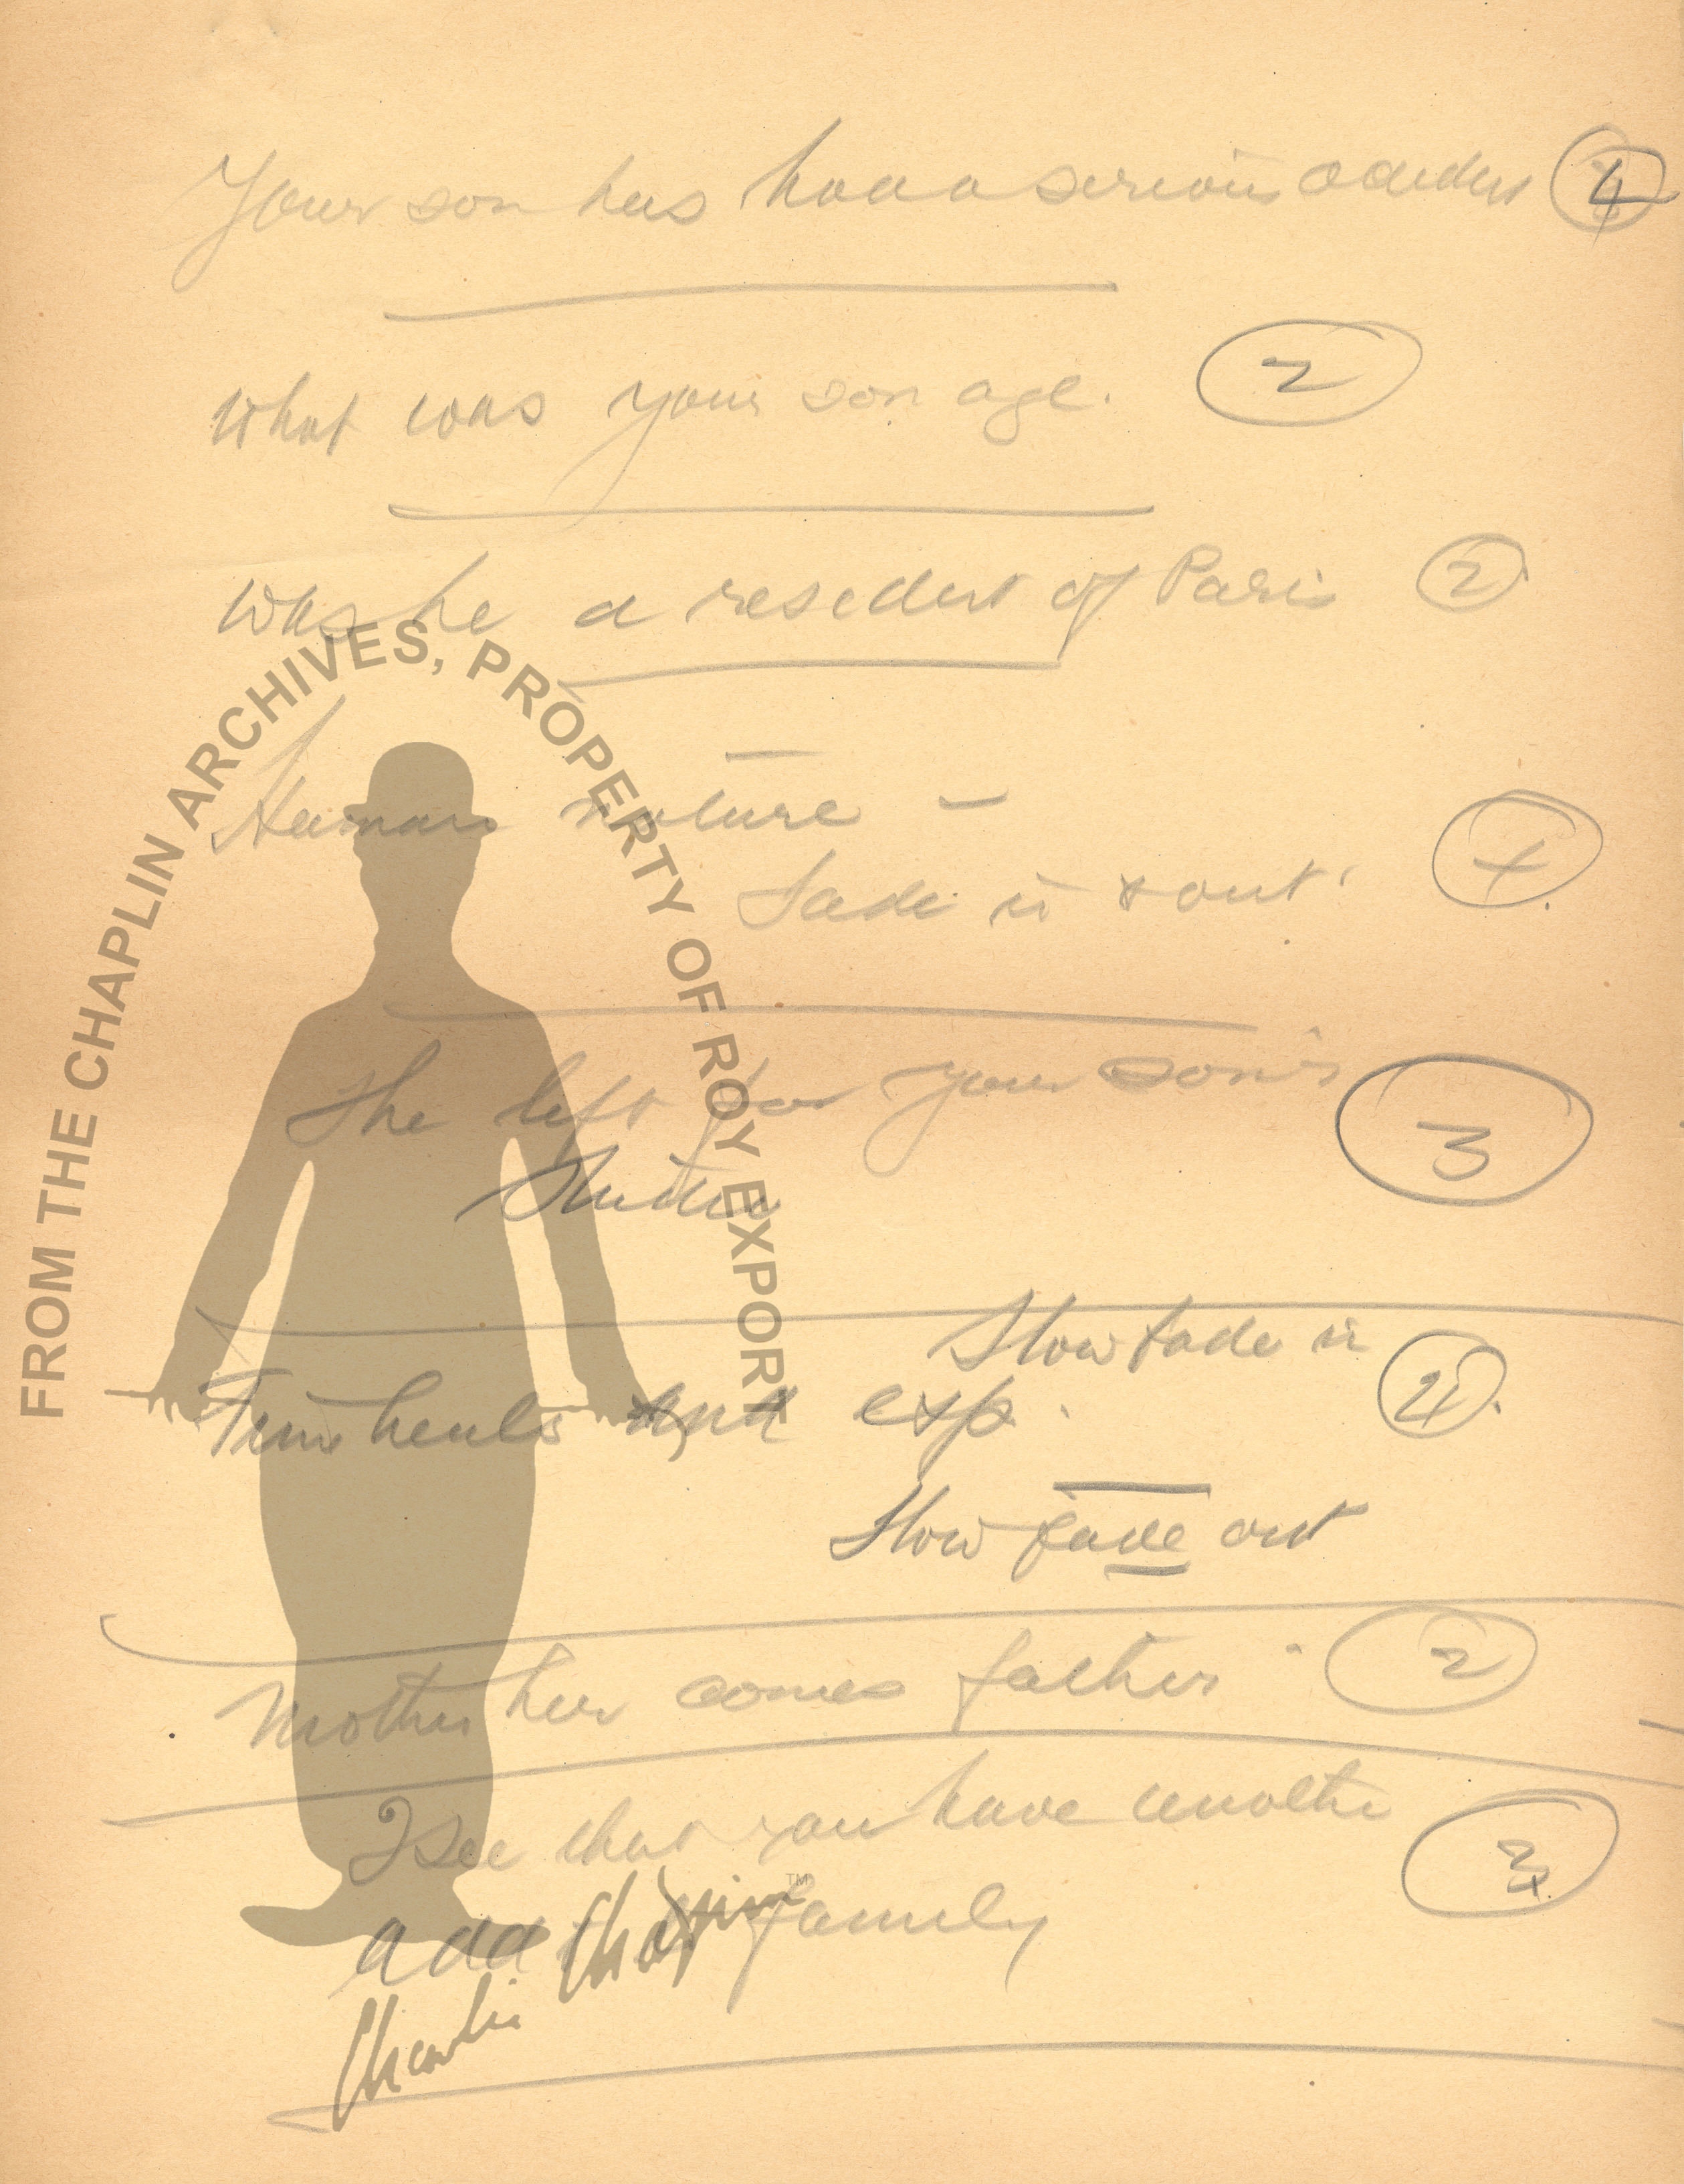 Your son has had a serious accident 4
What was your son age. 2
was he a resident of Paris 2
Human nature –
fade in & out. 4
She left for your son's 3
Studio
Slow fade in
Time heals and exp. 4
Slow fade out
Mother her comes father 2
I see that you have another 3
add family
FROM THE CHAPLIN ARCHIVES, PROPERTY OF ROY EXPORT
Charlie Chaplin TM